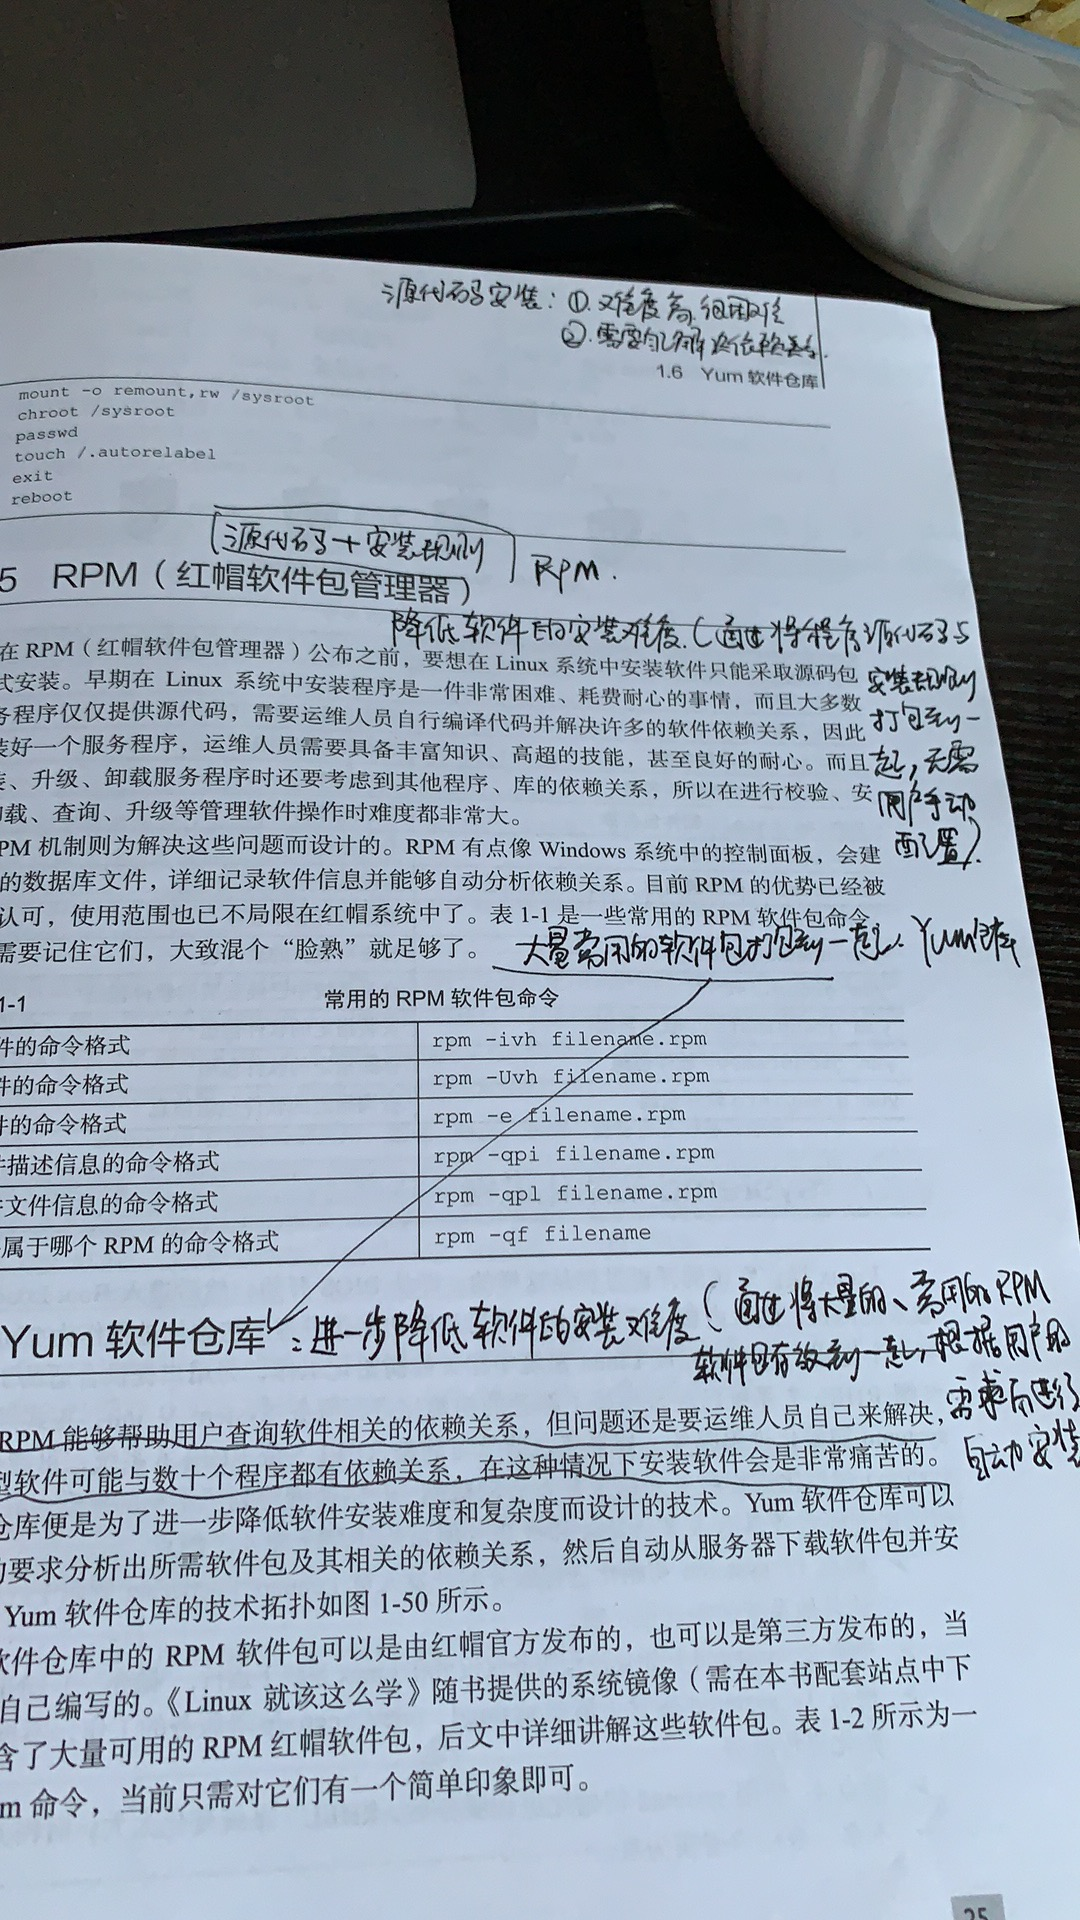 源代码安装：①.难度高、很困难
②.需要自己解决依赖关系.
1.6 Yum 软件仓库
mount -o remount,rw /sysroot
chroot /sysroot
passwd
touch /.autorelabel
exit
reboot
源代码+安装规则 RPM.
5 RPM（红帽软件包管理器）
降低软件的安装难度.（通过将程序源代码与
安装规则
打包到一
起，无需
用户手动
配置）.
在 RPM（红帽软件包管理器）公布之前，要想在 Linux 系统中安装软件只能采取源码包
式安装。早期在 Linux 系统中安装程序是一件非常困难、耗费耐心的事情，而且大多数
务程序仅仅提供源代码，需要运维人员自行编译代码并解决许多的软件依赖关系，因此
装好一个服务程序，运维人员需要具备丰富知识、高超的技能，甚至良好的耐心。而且
、升级、卸载服务程序时还要考虑到其他程序、库的依赖关系，所以在进行校验、安
卸载、查询、升级等管理软件操作时难度都非常大。
PM 机制则为解决这些问题而设计的。RPM 有点像 Windows 系统中的控制面板，会建
的数据库文件，详细记录软件信息并能够自动分析依赖关系。目前 RPM 的优势已经被
认可，使用范围也已不局限在红帽系统中了。表 1-1 是一些常用的 RPM 软件包命令
需要记住它们，大致混个“脸熟”就足够了。
大量常用的软件包打包到一起. Yum仓库
1-1 常用的 RPM 软件包命令
件的命令格式 rpm -ivh filename.rpm
件的命令格式 rpm -Uvh filename.rpm
件的命令格式 rpm -e filename.rpm
描述信息的命令格式 rpm -qpi filename.rpm
文件信息的命令格式 rpm -qpl filename.rpm
属于哪个 RPM 的命令格式 rpm -qf filename
Yum 软件仓库
：进一步降低软件的安装难度（通过将大量的、常用的RPM
软件包存放到一起，根据用户的
需求而进行
自动安装
RPM 能够帮助用户查询软件相关的依赖关系，但问题还是要运维人员自己来解决，
型软件可能与数十个程序都有依赖关系，在这种情况下安装软件会是非常痛苦的。
仓库便是为了进一步降低软件安装难度和复杂度而设计的技术。Yum 软件仓库可以
的要求分析出所需软件包及其相关的依赖关系，然后自动从服务器下载软件包并安
Yum 软件仓库的技术拓扑如图 1-50 所示。
软件仓库中的 RPM 软件包可以是由红帽官方发布的，也可以是第三方发布的，当
自己编写的。《Linux 就该这么学》随书提供的系统镜像（需在本书配套站点中下
含了大量可用的 RPM 红帽软件包，后文中详细讲解这些软件包。表 1-2 所示为一
m 命令，当前只需对它们有一个简单印象即可。
25